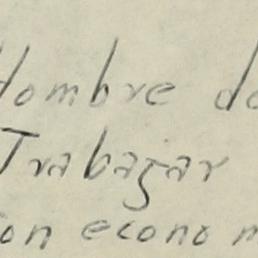 Hombre do
Trabajar
ion econo m